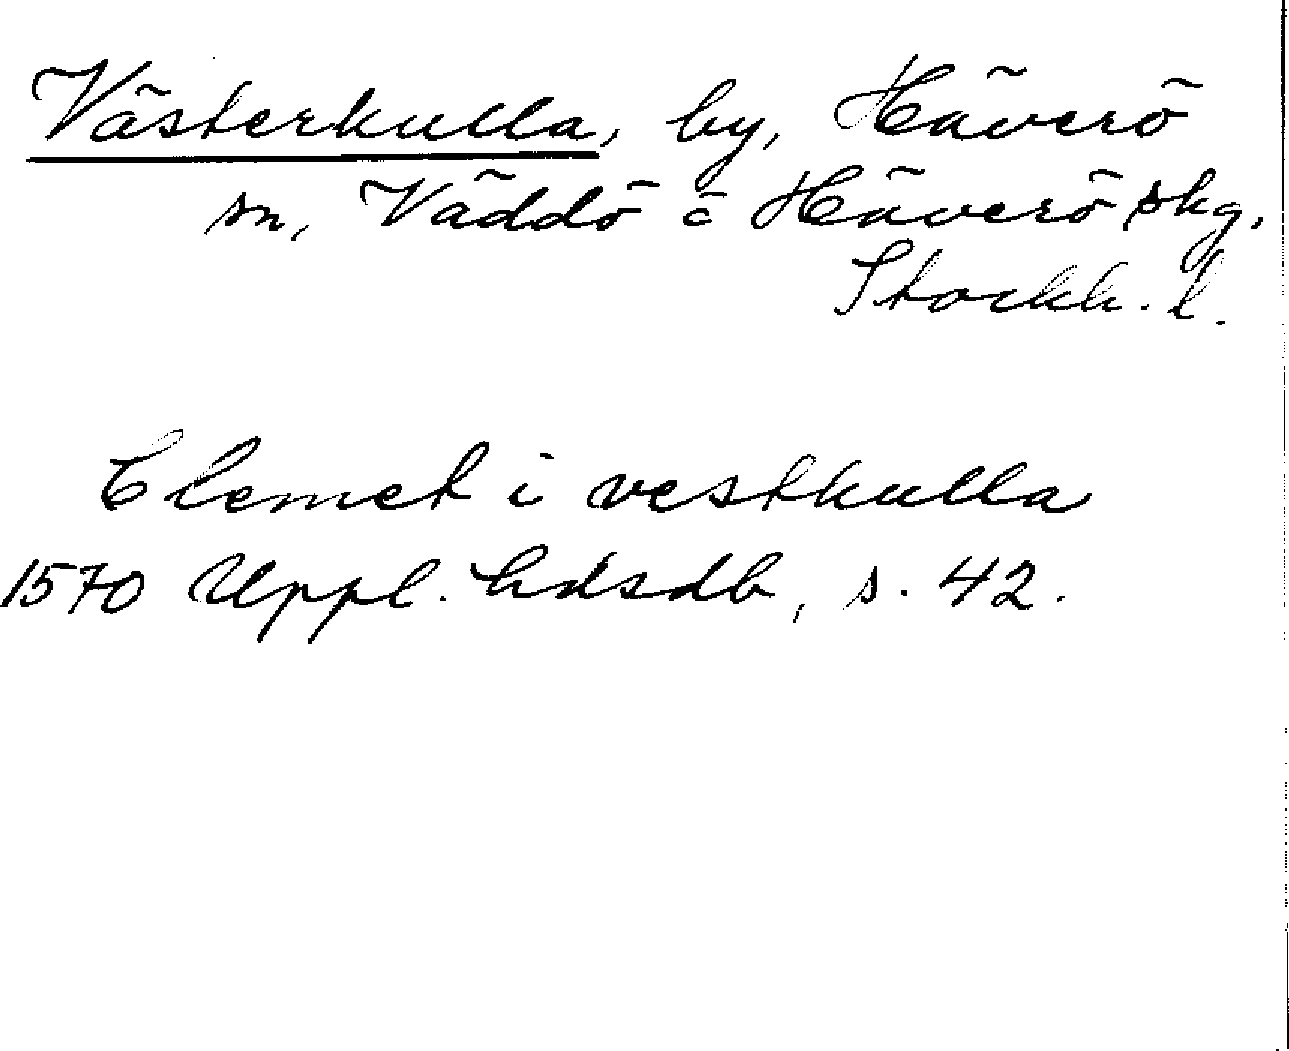 Västerkulla, by, Häverö
sn, Väddö o Häverö skg,
Stockh. l.
Clemet i vestkulla
1570 Uppl. hdsdb, s. 42.